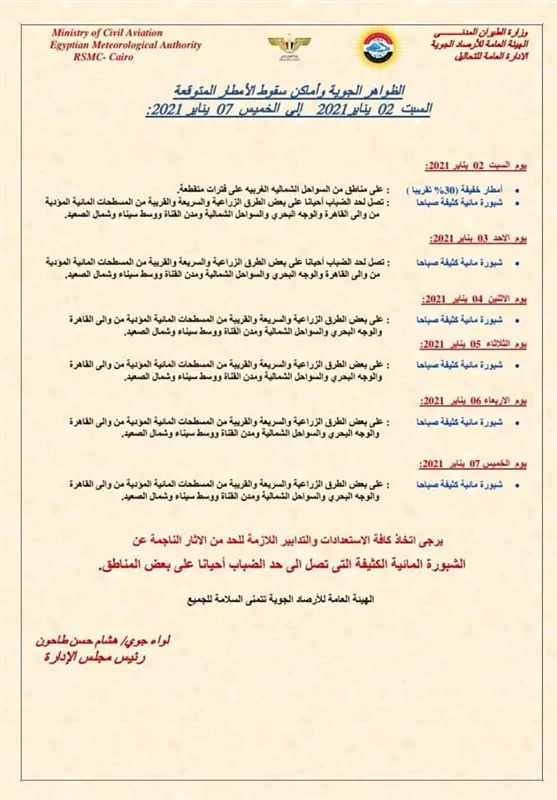 Ministry of Civil Aviation
Egyptian Meteorological Authority
RSMC- Cairo
وزارة الطيران المدنـــى
الهيئة العامة للأرصاد الجوية
الادارة العامة للتحاليل
الظواهر الجوية وأماكن سقوط الأمطار المتوقعة
السبت 02 يناير2021 إلى الخميس 07 يناير 2021:
يوم السبت 02 يناير 2021:
• أمطار خفيفة (30% تقريبا ) : على مناطق من السواحل الشماليه الغربيه على فترات متقطعة.
• شبورة مائية كثيفة صباحا : تصل لحد الضباب أحيانا على بعض الطرق الزراعية والسريعة والقريبة من المسطحات المائية المؤدية
من والى القاهرة والوجه البحري والسواحل الشمالية ومدن القناة ووسط سيناء وشمال الصعيد.
يوم الاحد 03 يناير 2021:
• شبورة مائية كثيفة صباحا : تصل لحد الضباب أحيانا على بعض الطرق الزراعية والسريعة والقريبة من المسطحات المائية المؤدية
من والى القاهرة والوجه البحري والسواحل الشمالية ومدن القناة ووسط سيناء وشمال الصعيد.
يوم الاثنين 04 يناير 2021:
• شبورة مائية كثيفة صباحا : على بعض الطرق الزراعية والسريعة والقريبة من المسطحات المائية المؤدية من والى القاهرة
والوجه البحري والسواحل الشمالية ومدن القناة ووسط سيناء وشمال الصعيد.
يوم الثلاثاء 05 يناير 2021:
• شبورة مائية كثيفة صباحا : على بعض الطرق الزراعية والسريعة والقريبة من المسطحات المائية المؤدية من والى القاهرة
والوجه البحري والسواحل الشمالية ومدن القناة ووسط سيناء وشمال الصعيد.
يوم الاربعاء 06 يناير 2021:
• شبورة مائية كثيفة صباحا : على بعض الطرق الزراعية والسريعة والقريبة من المسطحات المائية المؤدية من والى القاهرة
والوجه البحري والسواحل الشمالية ومدن القناة ووسط سيناء وشمال الصعيد.
يوم الخميس 07 يناير 2021:
• شبورة مائية كثيفة صباحا : على بعض الطرق الزراعية والسريعة والقريبة من المسطحات المائية المؤدية من والى القاهرة
والوجه البحري والسواحل الشمالية ومدن القناة ووسط سيناء وشمال الصعيد.
يرجى اتخاذ كافة الاستعدادات والتدابير اللازمة للحد من الاثار الناجمة عن
الشبورة المائية الكثيفة التى تصل الى حد الضباب أحيانا على بعض المناطق.
الهيئة العامة للأرصاد الجوية تتمنى السلامة للجميع
لواء جوي/ هشام حسن طاحون
رئيس مجلس الإدارة